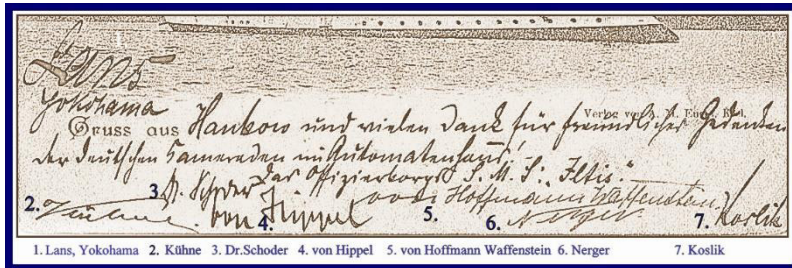 Lans
Yokohama
Verlag von A. M.
Gruss aus Hankow und vielen Dank für freundliches Gedenken
der deutschen Kameraden im Automatenland!
Das Offizierkorps S. M. S. „Iltis“
2. Kühne 3. Dr. Schoder 4. von Hippel 5. von Hoffmann Waffenstein 6. Nerger 7. Koslik
1. Lans, Yokohama 2. Kühne 3. Dr.Schoder 4. von Hippel 5. von Hoffmann Waffenstein 6. Nerger 7. Koslik